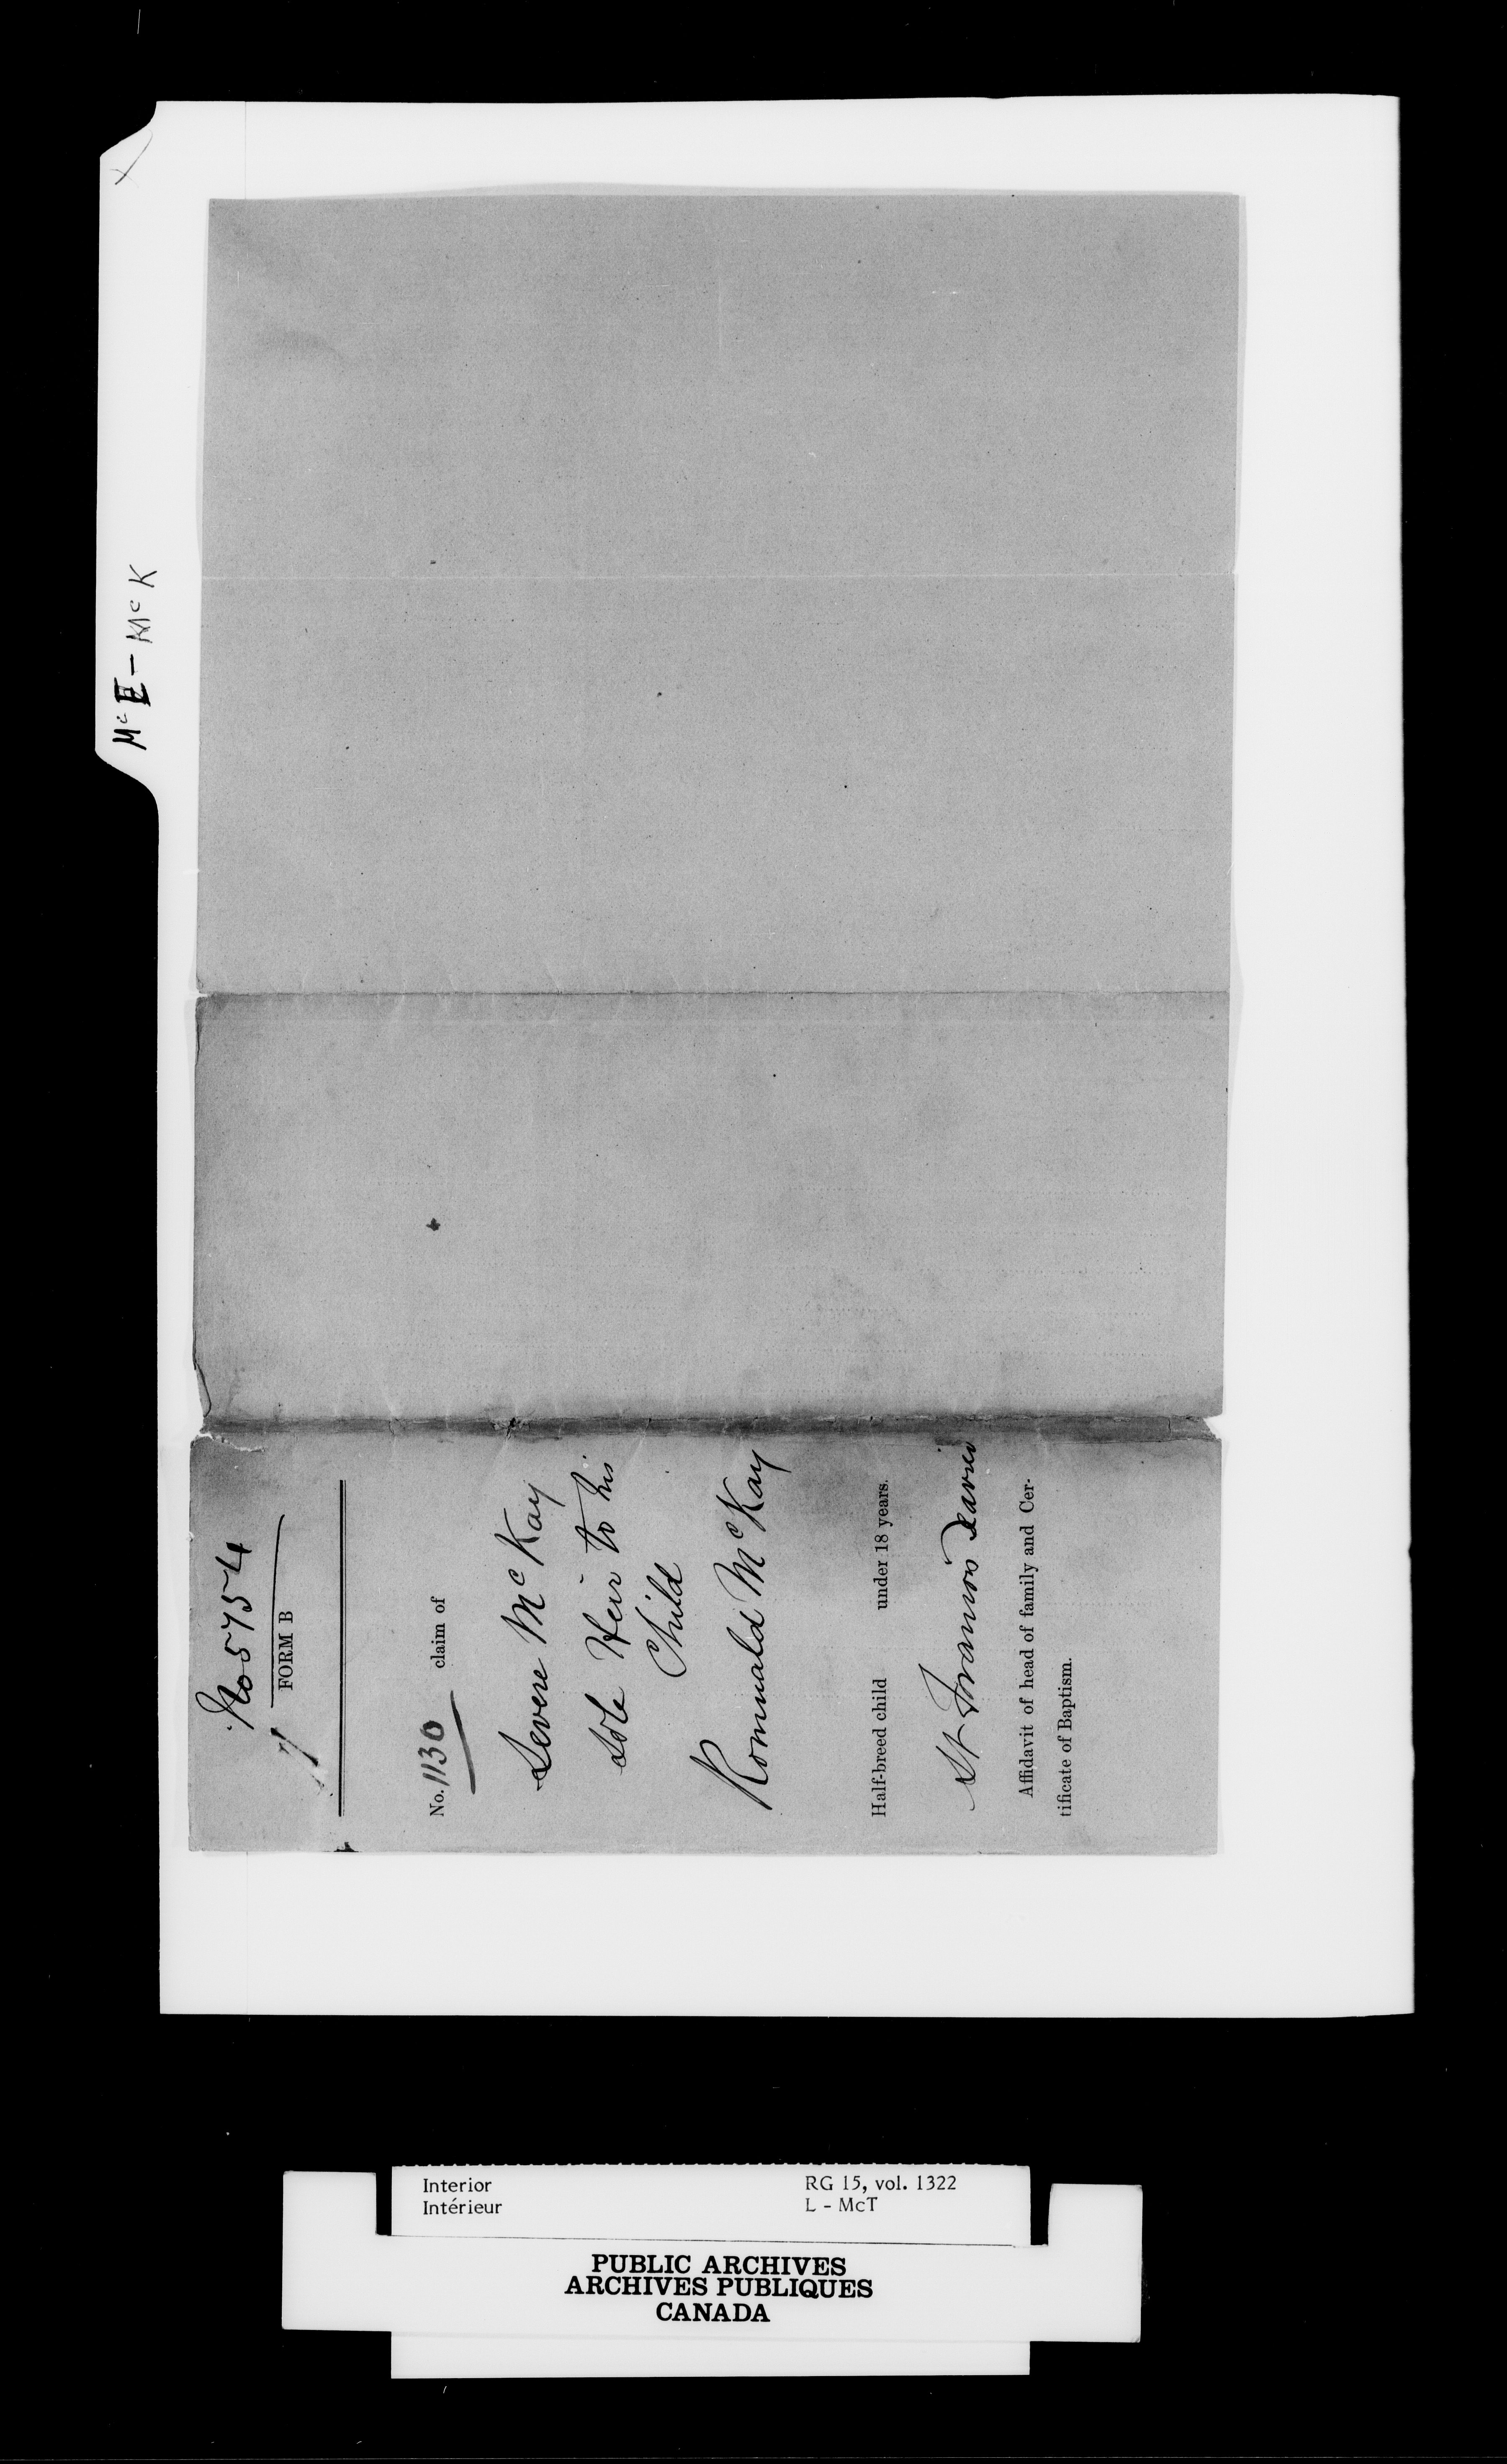 McE - McK
No 5754
FORM B
No. 1130 claim of
Severe McKay
Sole Heir to his
Child
Romuald McKay
Half-breed child under 18 years.
St Francois Xavier
Affidavit of head of family and Cer-
tificate of Baptism.
Interior RG 15, vol. 1322
Intérieur L - McT
PUBLIC ARCHIVES
ARCHIVES PUBLIQUES
CANADA